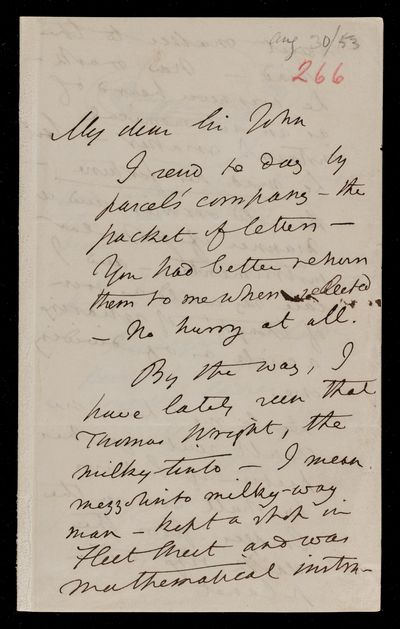 Aug 30/53
266
My dear Sir John
I send to day by
parcels company – the
packet of letters –
You had better return
them to me when selected
– No hurry at all.
By the way, I
have lately seen that
Thomas Wright, the
milky-tinto – I mean
mezzotinto milky-way
man – kept a shop in
Fleet Street and was
mathematical instru-